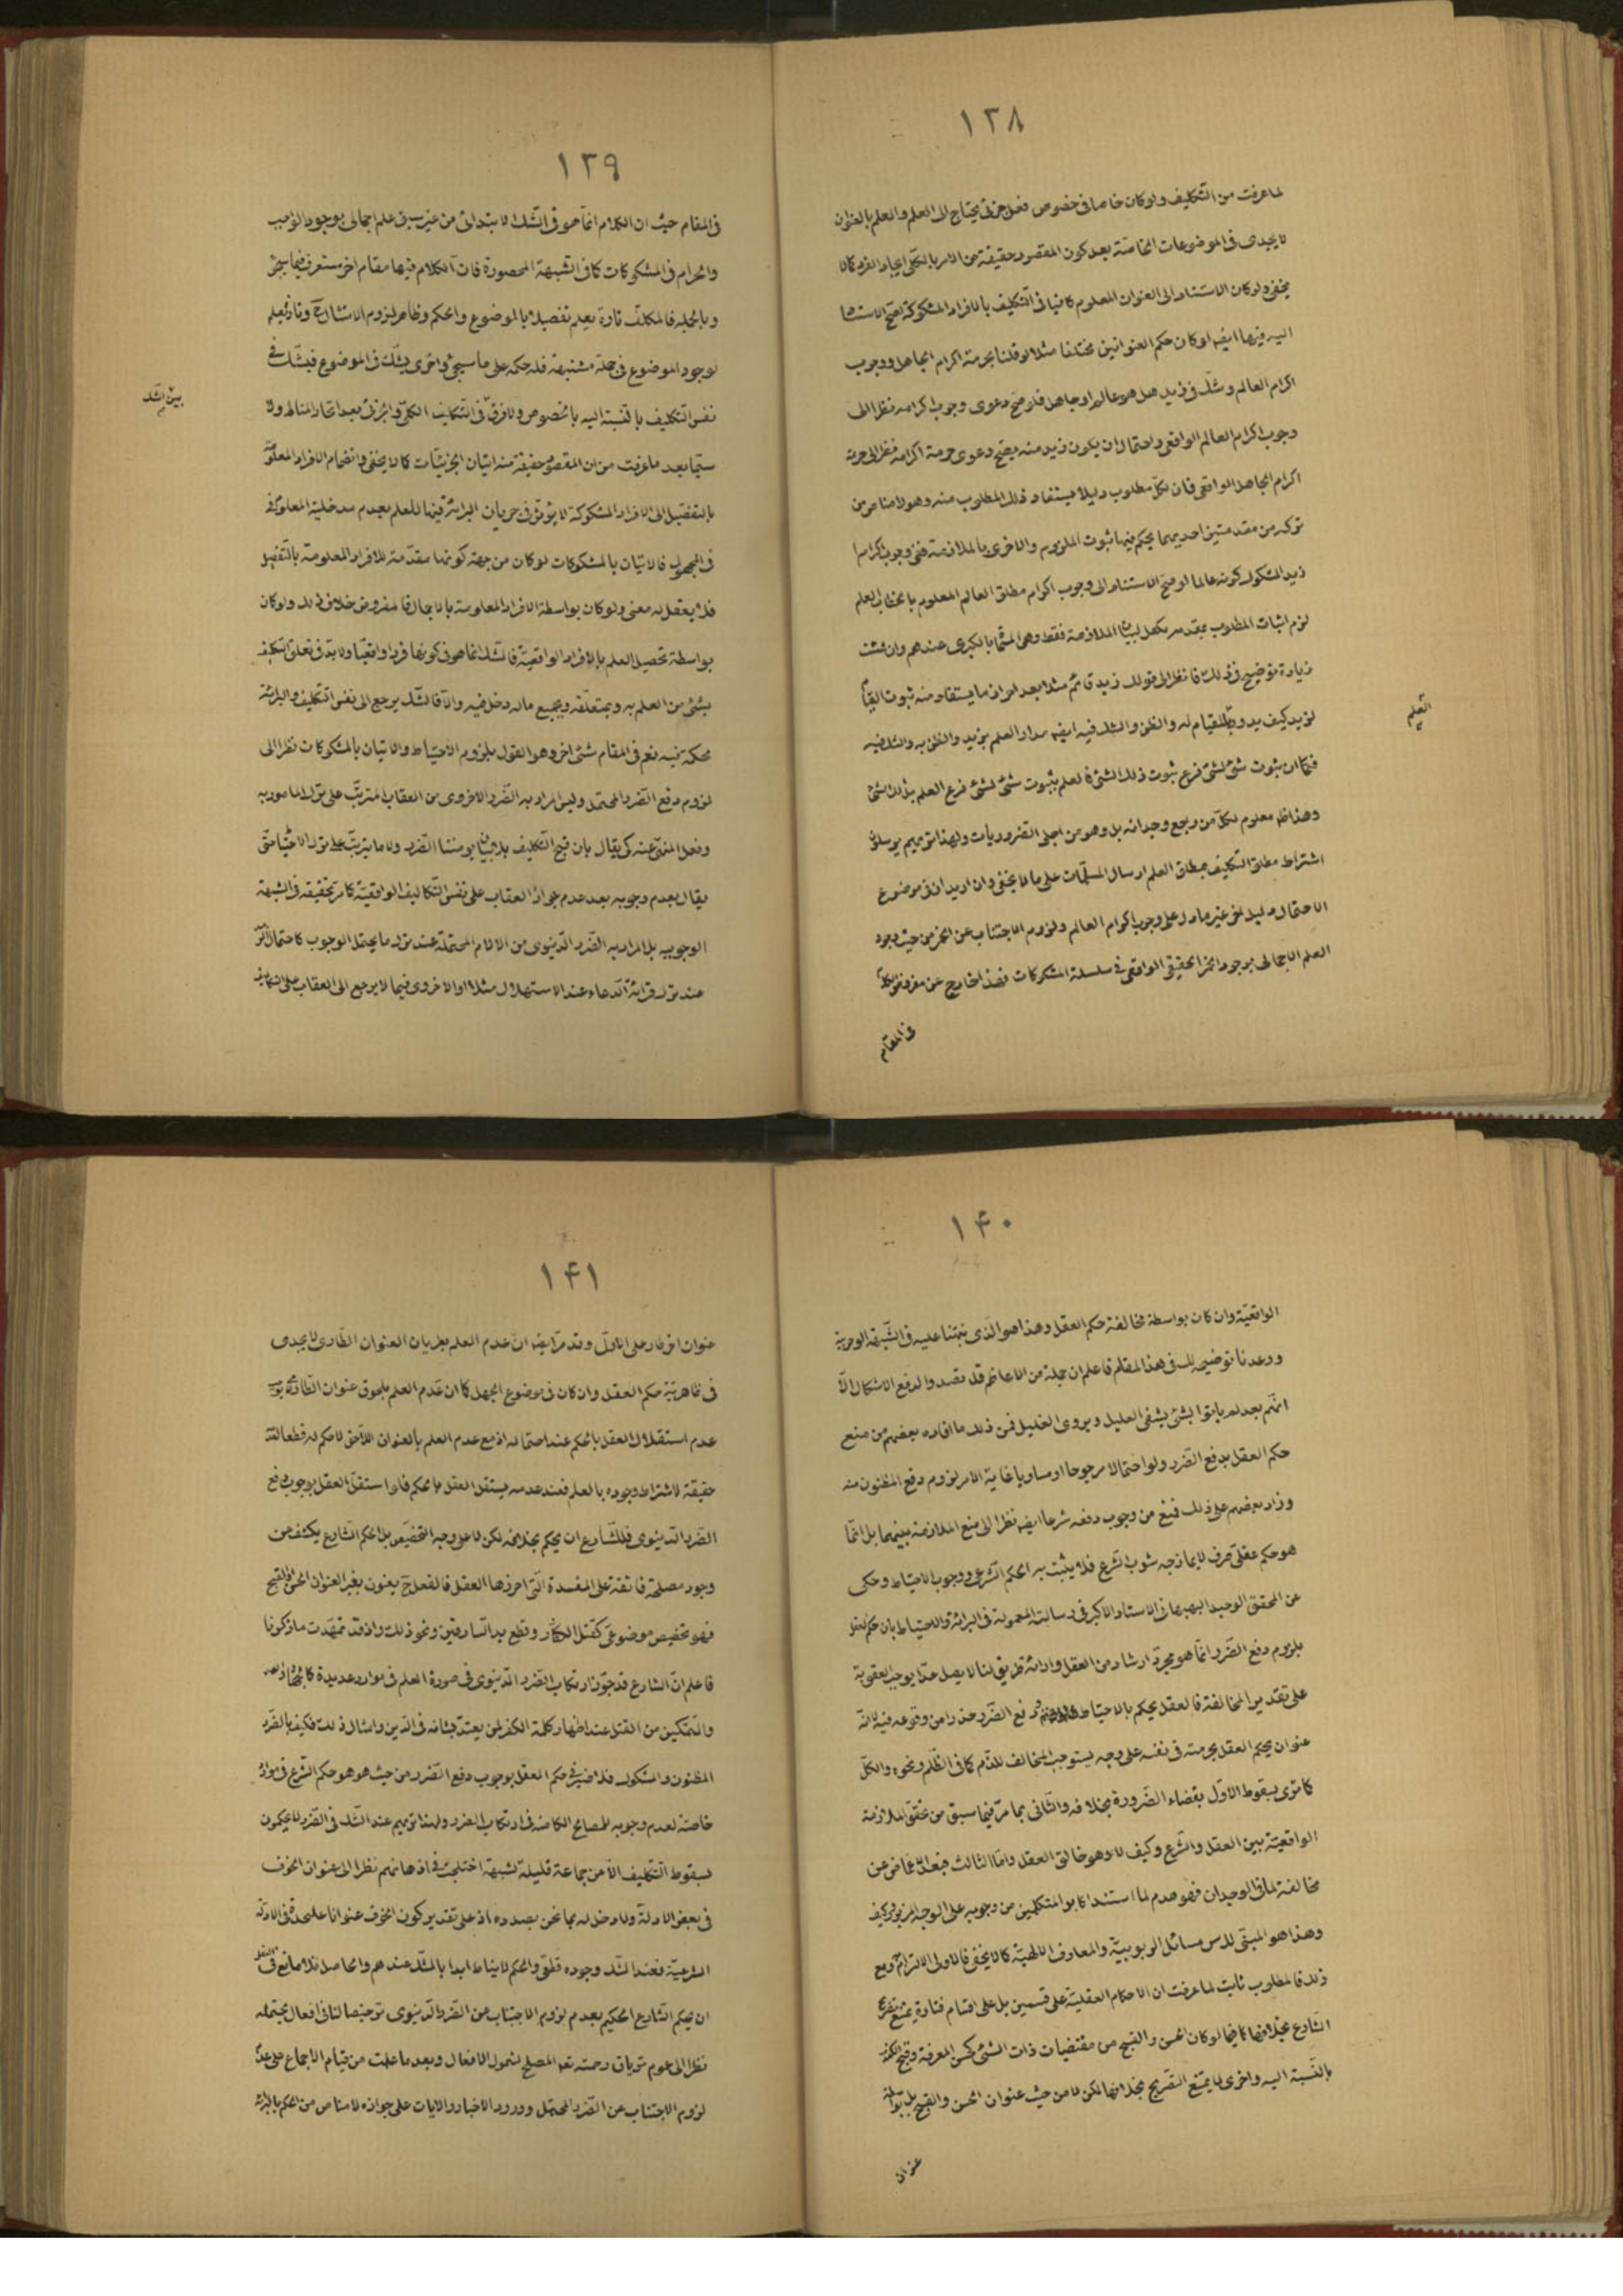 ١٣٨
لما عرفت من التّكليف ولو كان خاصا فى خصوص فعل جزئى يحتاج الى العلم والعلم بالعنوان
لا يجدى فى الموضوعات الخاصّة بعد كون المقصود حقيقة من الامر بالكلّى ايجاد الفرد كما لا
يخفى ولو كان الاستناد الى العنوان المعلوم كافيا فى التّكليف بالافراد المشكوكة لصحّ الاستناد
اليه فيها ايضا لو كان حكم العنوانين مختلفا مثلا لو قلنا بحرمة اكرام الجاهل ووجوب
اكرام العالم وشكّ فى زيد هل هو عالم او جاهل فلو صحّ دعوى وجوب اكرامه نظرا الى
وجوب اكرام العالم الواقعى واحتمال ان يكون زيد منه يصحّ دعوى حرمة اكرامه نظرا الى حرمة
اكرام الجاهل الواقعى فان لكلّ مطلوب دليلا يستفاد ذلك المطلوب منه وهو لا مناص من
تركبه من مقدمتين احديهما يحكم فيها ثبوت الملزوم والاخرى بالملازمة ففى وجوب اكرام
زيد المشكوك كونه عالما لو صحّ الاستناد الى وجوب اكرام مطلق العالم المعلوم بالخطاب العلم
لزم اثبات المطلوب بمقدمة تكفل لبيان الملازمة فقط وهى المسمّاة بالكبرى عندهم وان شئت
زيادة توضيح فى ذلك فانظر الى قولك زيد قائم مثلا بعد احراز ما يستفاد منه ثبوت القيام
لزيد كيف يدور العلم بالقيام له والظن والشك فيه ايضا مدار العلم بزيد والظن به والشك فيه
فكما ان ثبوت شئ لشئ فرع ثبوت ذلك الشئ فالعلم بثبوت شئ لشئ فرع العلم بذلك الشئ
وهذا ظاهر معلوم لكلّ من راجع وجدانه بل وهو من اجلى الضّروريات ولهذا تريهم يرسلون
اشتراط مطلق التكليف بمطلق العلم ارسال المسلّمات على ما لا يخفى وان اريد ان فى موضوع
الاحتمال دليل اخر غير ما دل على وجوب اكرام العالم ولزوم الاجتناب عن الخمر من حيث وجود
العلم الاجمالى بوجود الخمر الحقيقى الواقعى فى سلسلة المشكوكات فهذا خارج عن مفروض الكلام
فى المقام
العلم
١٣٩
فى المقام حيث ان الكلام انّما هو فى الشّك الابتدائى من غير سبق علم اجمالى بوجود الواجب
والحرام فى المشكوكات كما فى الشّبهة المحصورة فانّ الكلام فيها مقام اخر ستعرف فيما سيجئ
وبالجملة فالمكلّف تارة يعلم تفصيلا بالموضوع والحكم وظاهر لزوم الامتثال ح وتارة يعلم
بوجود الموضوع فى جملة مشتبهة فله حكمه على ما سيجئ واخرى يشكّ فى الموضوع فيشكّ فى
نفس التّكليف بالنّسبة اليه بالخصوص ولا فرق فى التّكليف الكلّى والجزئى بعد اتحاد المناط ولا
سيّما بعد ما عرفت من ان المقصود حقيقة منه اتيان الجزئيّات كما لا يخفى وانضمام الافراد المعلومة
بالتفصيل الى الافراد المشكوكة لا يؤثّر فى جريان البرائة فيها للعلم بعدم مدخلية المعلوم فى
فى المجهول فالاتيان بالمشكوكات لو كان من جهة كونها مقدّمة للافراد المعلومة بالتّفصيل
فلا يعقل له معنى ولو كان بواسطة الافراد المعلومة بالاجمال فالمفروض خلاف ذلك ولو كان
بواسطة تحصيل العلم بالافراد الواقعيّة فالشّك انما هو فى كونها فردا واقعيّا ولا بدّ فى تعلق التّكليف
بشئ من العلم به وبمتعلّقه وبجميع ما له دخل فيه والّا فالشّك يرجع الى نفس التّكليف والبرائة
محكمة فيه نعم فى المقام شئ اخر وهو القول بلزوم الاحتياط والاتيان بالمشكوكات نظرا الى
لزوم دفع الضّرر المحتمل وليس المراد به الضّرر الاخروى من العقاب المترتّب على ترك المامور به
وفعل المنهى عنه كى يقال بان قبح التّكليف بلا بيان يؤمننا الضّرر ولا ما يترتّب على ترك الاحتياط حتّى
يقال بعدم وجوبه بعد عدم جواز العقاب على نفس التّكاليف الواقعيّة كما مرّ تحقيقه فى الشّبهة
الوجوبيه بل المراد به الضّرر الدّنيوى من الالام المحتملة عند ترك ما يحتمل الوجوب كاحتمال
عند ترك قرائة الدّعاء عند الاستهلال مثلا او الاخروى فيما لا يرجع الى العقاب على التكاليف
بين الشك
١۴٠
الواقعيّة وان كان بواسطة مخالفة حكم العقل وهذا هو الّذى نبّهنا عليه فى الشّبهة الوجوبيّة
ووعدنا توضيحه لك فى هذا المقام فاعلم ان جملة من الاعاظم قد تصدوا لدفع الاشكال الّا
انهم بعد لم ياتوا بشئ يشفى العليل ويروى الغليل فمن ذلك ما افاده بعضهم من منع
حكم العقل بدفع الضّرر ولو احتمالا مرجوحا او مساويا غاية الامر لزوم دفع المظنون منه
وزاد بعضهم على ذلك فمنع من وجوب دفعه شرعا ايضا نظرا الى منع الملازمة بينهما بل انّما
هو حكم عقلىّ صرف لا يمازجه شوب الشّرع فلا يثبت به الحكم الشّرعى ووجوب الاحتياط وحكى
عن المحقق الوحيد البهبهانى الاستاد الاكبر فى رسالته المعمولة فى البرائة والاحتياط بان حكم العقل
بلزوم دفع الضّرر انّما هو مجرّد ارشاد من العقل وارائة طريق لنا لا يصل حدّا يوجب العقوبة
على تقدير المخالفة فالعقل يحكم بالاحتياط ودفع الضّرر حذرا من وقوعه فيه لا انّه
عنوان يحكم العقل بحرمته فى نفسه على وجه يستوجب المخالف للذّم كما فى الظّلم ونحوه والكلّ
كما ترى لسقوط الاوّل بقضاء الضّرورة بخلافه والثّانى بما مرّ فيما سبق من تحقّق الملازمة
الواقعيّة بين العقل والشّرع وكيف لا وهو خالق العقل وامّا الثالث فبعد الاغماض عن
مخالفته لما فى الوجدان فهو هدم لما استند اكابر المتكلمين من وجوبه على الوجه المزبور وكيف
وهذا هو المبتنى لاسّ مسائل الربوبيّة والمعارف الالهيّة كما لا يخفى فالاولى الالتزام ومع
ذلك فالمطلوب ثابت لما عرفت ان الاحكام العقليّة على قسمين بل على اقسام فتارة يمتنع تصريح
الشّارع بخلافها كما فيما لو كان الحسن والقبح من مقتضيات ذات الشئ كحسن المعرفة وقبح الكفر
بالنّسبة اليه واخرى لا يمتنع التّصريح بخلافها لكن لا من حيث عنوان الحسن والقبح بل بواسطة
عنوان
١۴١
عنوان اخر طار على الاوّل وقد مرّ ايضا انّ عدم العلم بطريان العنوان الطّارى لا يجدى
فى ظاهريّة حكم العقل وان كان فى موضوع الجهل كما ان عدم العلم بلحوق عنوان الطّارى يوجب
عدم استقلال العقل بالحكم عند احتماله اذ مع عدم العلم بالعنوان اللّاحق لا حكم له قطعا لفقد
حقيقة لاشتراط وجوده بالعلم فعند عدمه يستقل العقل بالحكم فلو استقلّ العقل بوجوب دفع
الضّرر الدّنيوى فللشّارع ان يحكم بخلافه لكن لا على وجه التخصيص بل الحكم الشّارع يكشف عن
وجود مصلحة فائقة على المفسدة الّتى احرزها العقل فالفعل ح يعنون بغير العنوان الحسن او القبيح
فهو تخصيص موضوعى كقتل الكفّار وقطع يد السّارقين ونحو ذلك واذ قد تمهّدت ما ذكرنا
فاعلم انّ الشارع قد جوّز ارتكاب الضّرر الدّنيوى فى صورة العلم فى موارد عديدة كالجهاد
والتّمكين من القتل عند اظهار كلمة الكفر لمن يعتدّ بشانه فى الدّين وامثال ذلك فكيف بالضّرر
المظنون والمشكوك فلا ضير فى حكم العقل بوجوب دفع الضّرر من حيث هو هو حكم الشّرع فى موارد
خاصّة لعدم وجوبه للمصالح الكامنة فى ارتكاب الضرر ولهذا تريهم عند الشّك فى الضّرر لا يحكمون
بسقوط التّكليف الّا من جماعة قليلة لشبهة اختلجت فى اذهانهم نظرا الى عنوان الخوف
فى بعض الادلة ولا دخل له بما نحن بصدده اذ على تقدير كون الخوف عنوانا عليحدة فى الادلّة
الشّرعيّة فعند الشّك وجوده قطعى والحكم لا يناط ابدا بالشّك عندهم والحاصل فلا مانع فى العقل
ان يحكم الشّارع الحكيم بعدم لزوم الاجتناب عن الضّرر الدّنيوى ترخيصا لنا فى افعال يحتمله
نظرا الى عموم ترياق رحمته تعم المصلح لشمول الافعال وبعد ما علمت من قيام الاجماع على عدم
لزوم الاجتناب عن الضّرر المحتمل وورود الاخبار والايات على جوازه لا مناص من الحكم بالبرائة